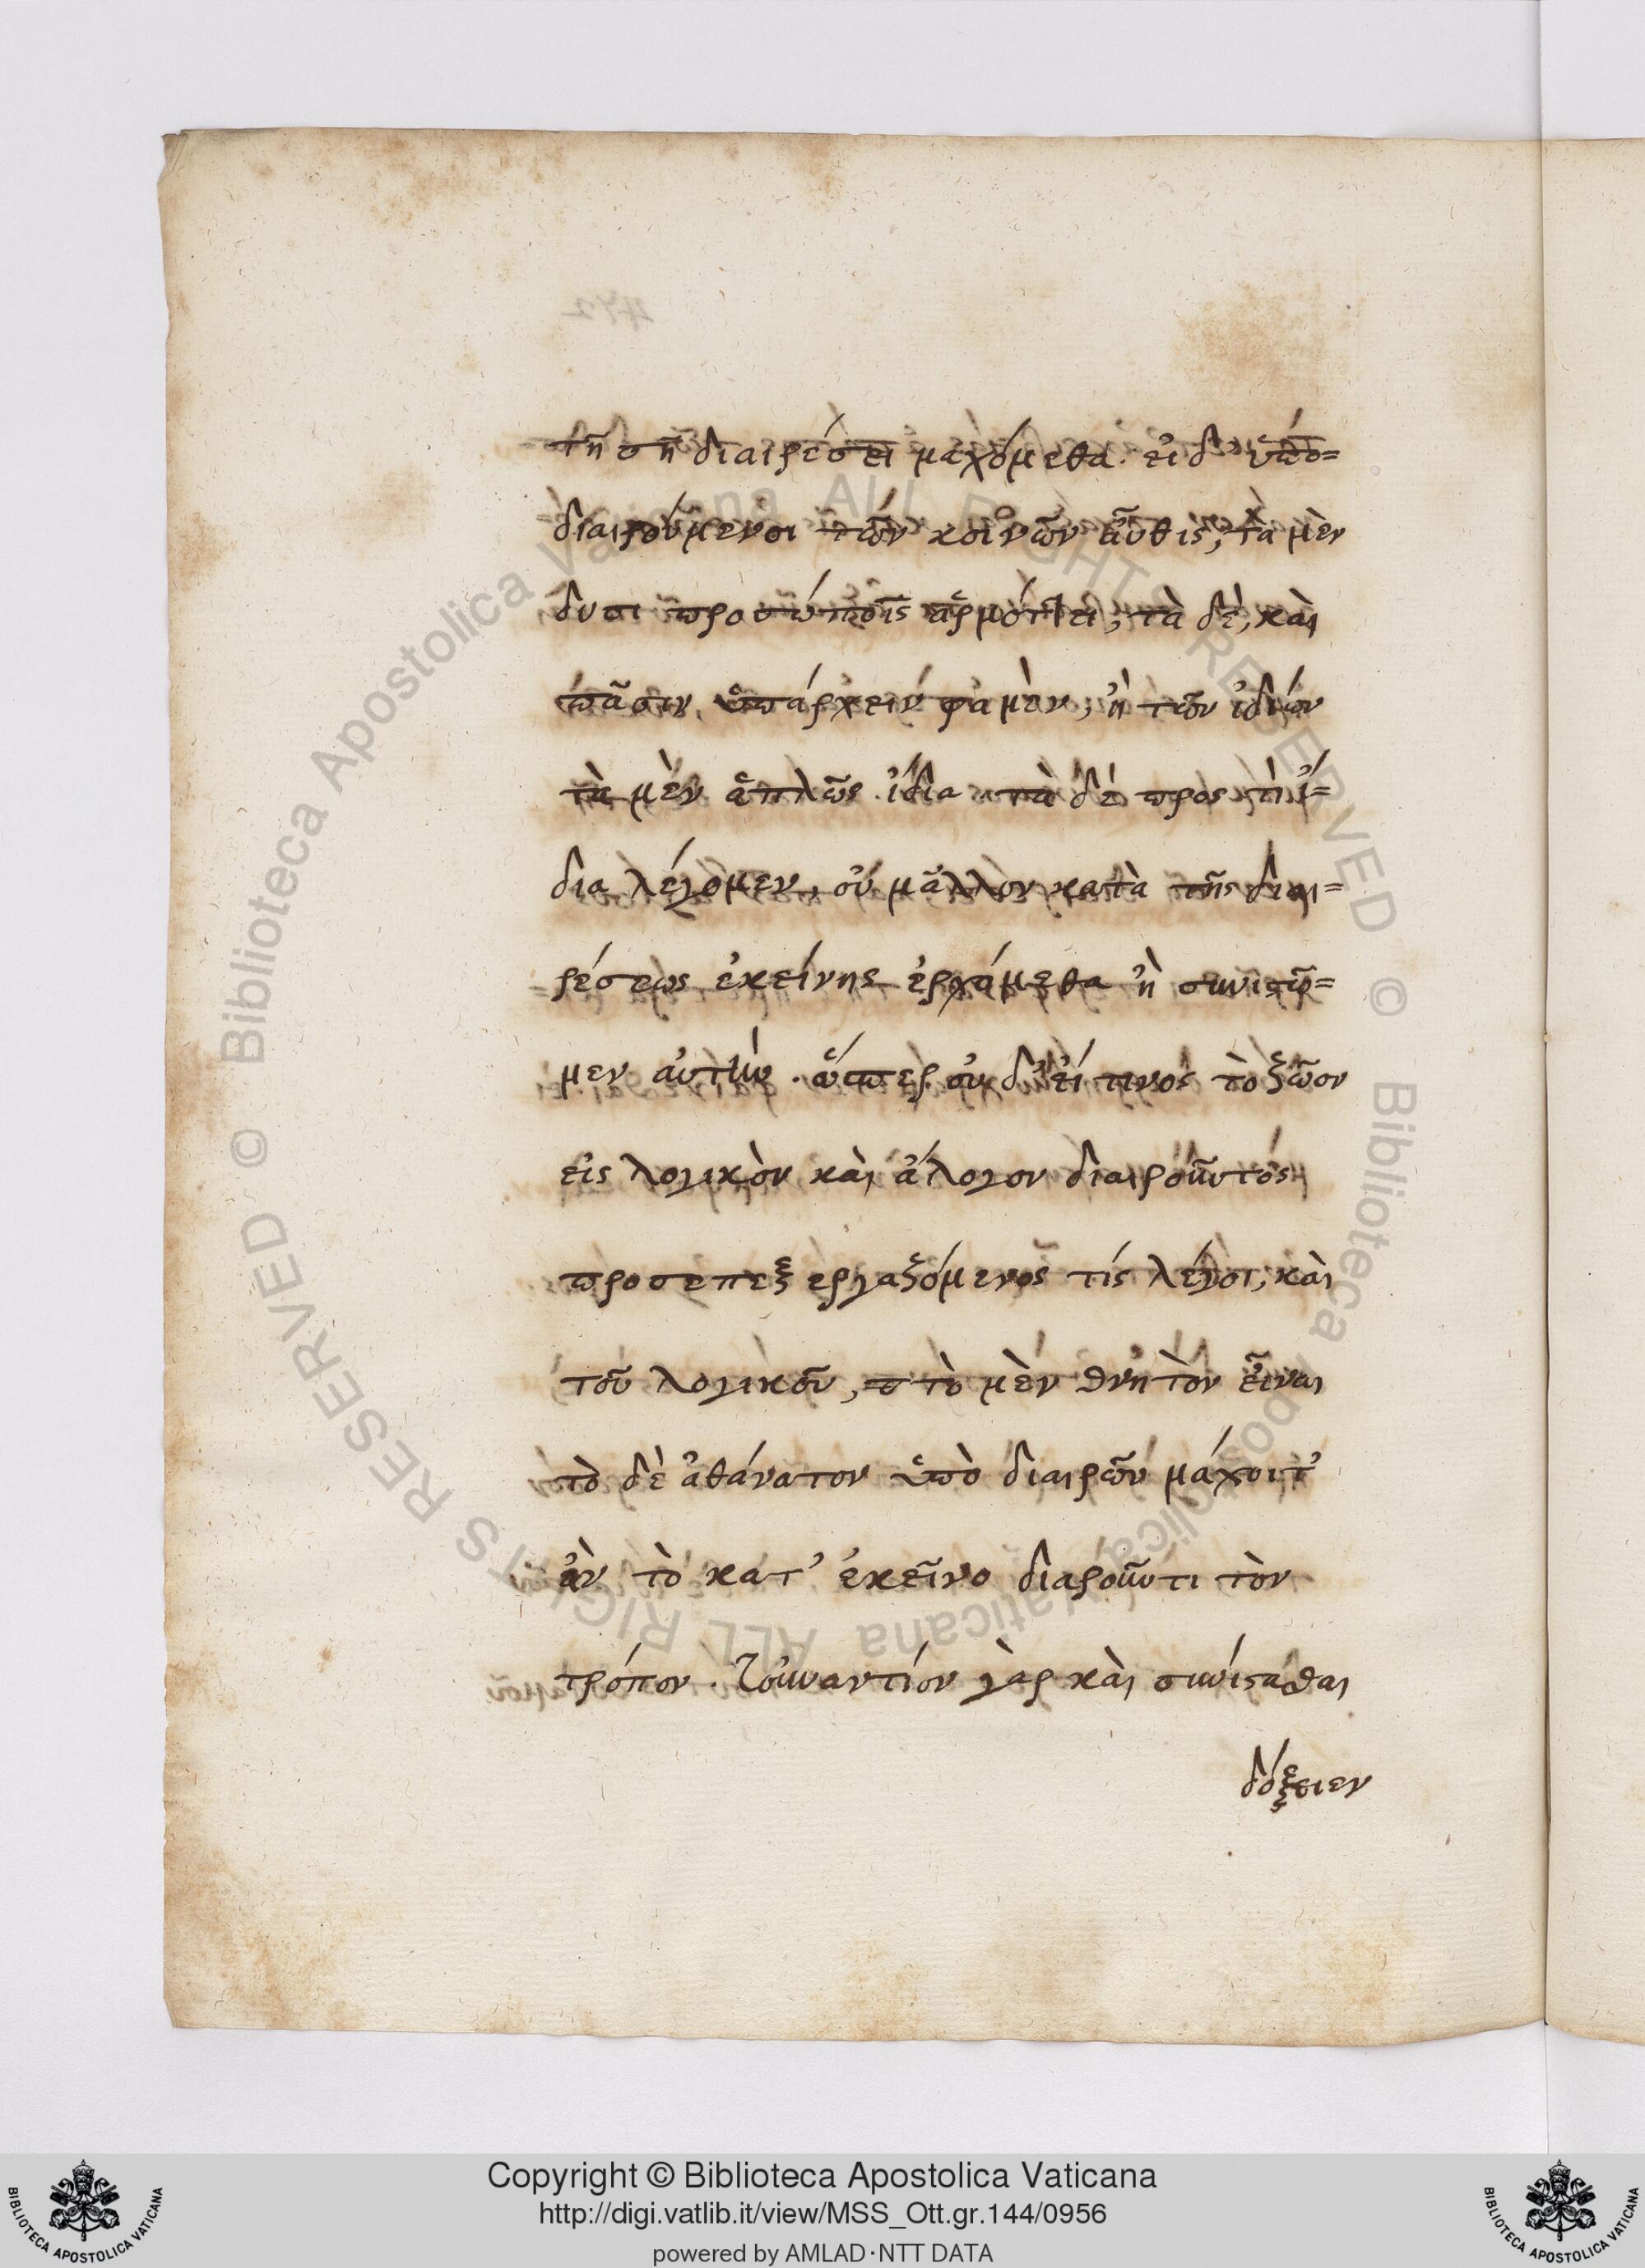 τῇ σῇ διαιρέσει μαχόμεθα. εἰ δ' ὑπο=
διαιρούμενοι τῶν κοινῶν αὖθις, τὰ μὲν
δυσι προσώποις ἁρμόττει, τὰ δὲ, καὶ
πᾶσιν ὑπάρχειν φαμὲν, ἢ τῶν ἰδίων
τὰ μὲν ἁπλῶς ἰδία τὰ δὲ πρὸς τὶ ἴ=
δια λέγομεν, οὐ μᾶλλον κατὰ τῆς διαι=
ρέσεως ἐκείνης ἐρχόμεθα ἢ συνιστῶ=
μεν αὐτὴν. ὥσπερ οὐδ' εἴ τινος τὸ ζῶον
εἰς λογικὸν καὶ ἄλογον διαιροῦντός
προσεπεξεργαζόμενος τίς λέγοι, καὶ
τοῦ λογικοῦ, τὸ μὲν θνητὸν εἶναι
τὸ δὲ ἀθάνατον ὑπὸ διαιρῶν μάχοιτ'
ἂν τὸ κατ' ἐκεῖνο διαροῦντι τὸν
τρόπον. Τοὐναντίον γὰρ καὶ συνίστασθαι
δόξειεν
Copyright © Biblioteca Apostolica Vaticana
http://digi.vatlib.it/view/MSS_Ott.gr.144/0956
powered by AMLAD·NTT DATA
BIBLIOTECA APOSTOLICA VATICANA
BIBLIOTECA APOSTOLICA VATICANA